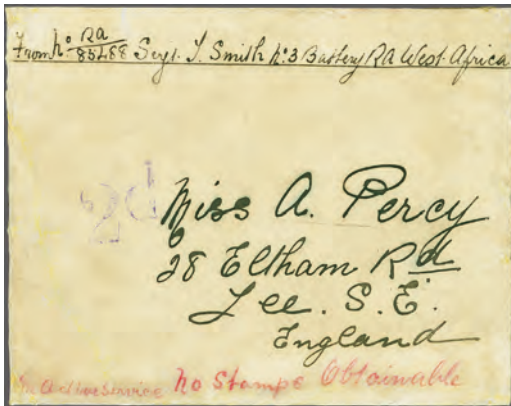 From No. RA/85268 Sergt. J. Smith No. 3 Battery RA West Africa
2d
Miss A. Percy
28 Eltham Rd
Lee. S. E.
England
On Active Service No Stamps Obtainable